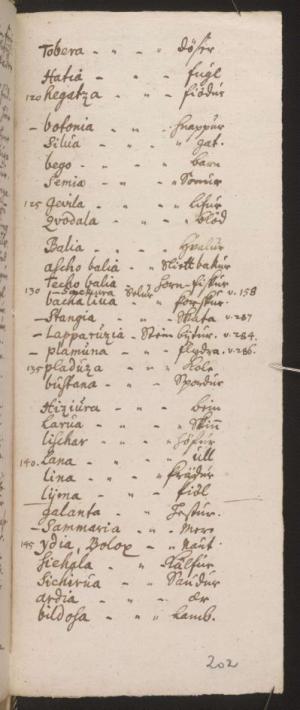 Tobera - - - döser
Hatia - - - fugl
120 hegatza - - - fiödur
- botonia - - - hnappur
Silua - - - gat.
bego - - - barn
Semia - - - Sonur
125 Gevila - - - lifur
Qvodala - - - blöd
Balia - - - Hvalur
ascho balia - - Slettbakur
Techo balia - - Horn-fiskur.
130 - Smettura Selur v. 158
bachaliua - - þorskur.
- Stangia - - Skata v. 287
- Lapparuzia - Steinbytur. v. 284.
- plamuna - - flydra. v. 286.
135 pladuza - - Kole
bustana - - Spordur
Hiziura - - bein
Larua - - Skinn
lischar - - höfur
140. Lana - - ull
lina - - þrädur
lijma - - fiöl
galanta - - Festur.
Sammaria - - Mere
145 ydia, Bolox - - Naut.
Sichala - - Kälfur
Sichirua - - Saudur
ardia - - ær
bildosa - - Lamb.
202